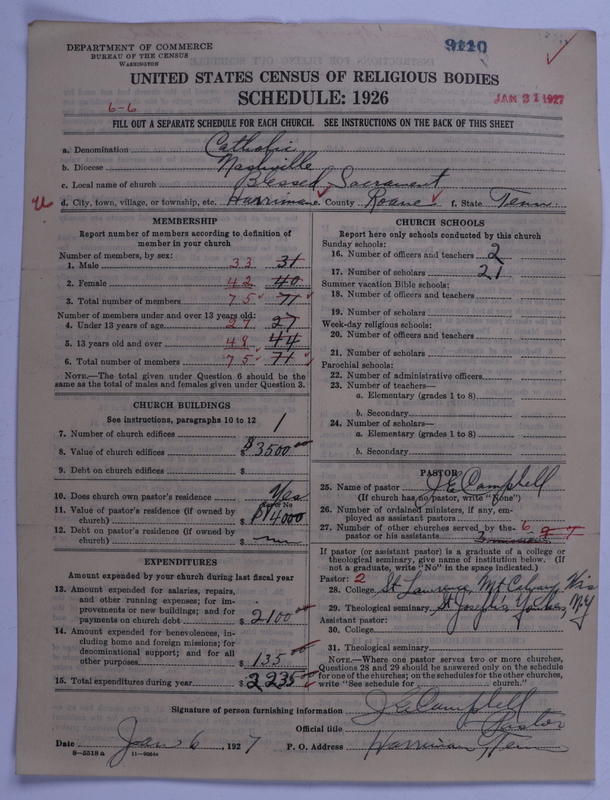 DEPARTMENT OF COMMERCE
BUREAU OF THE CENSUS
WASHINGTON
9110
UNITED STATES CENSUS OF RELIGIOUS BODIES
SCHEDULE: 1926
JAN 21 1927
6-6
FILL OUT A SEPARATE SCHEDULE FOR EACH CHURCH. SEE INSTRUCTIONS ON THE BACK OF THIS SHEET
a. Denomination Catholic
b. Diocese Nashville
c. Local name of church Blessed Sacrament
d. City, town, village, or township, etc. Harriman e. County Roane f. State Tenn.
MEMBERSHIP
Report number of members according to definition of
member in your church
Number of members, by sex:
1. Male 33 31
2. Female 42 40
3. Total number of members 75 71
Number of members under and over 13 years old:
4. Under 13 years of age 27 27
5. 13 years old and over 48 44
6. Total number of members 75 71
NOTE.—The total given under Question 6 should be the
same as the total of males and females given under Question 3.
CHURCH BUILDINGS
See instructions, paragraphs 10 to 12
7. Number of church edifices 1
8. Value of church edifices $ 3500.00
9. Debt on church edifices $
10. Does church own pastor's residence Yes
Yes or No
11. Value of pastor's residence (if owned by
church) $ 14000
12. Debt on pastor's residence (if owned by
church) $
EXPENDITURES
Amount expended by your church during last fiscal year
13. Amount expended for salaries, repairs,
and other running expenses; for im-
provements or new buildings; and for
payments on church debt $ 2100.00
14. Amount expended for benevolences, in-
cluding home and foreign missions; for
denominational support; and for all
other purposes $ 135.00
15. Total expenditures during year $ 2235.00
CHURCH SCHOOLS
Report here only schools conducted by this church
Sunday schools:
16. Number of officers and teachers 2
17. Number of scholars 21
Summer vacation Bible schools:
18. Number of officers and teachers
19. Number of scholars
Week-day religious schools:
20. Number of officers and teachers
21. Number of scholars
Parochial schools:
22. Number of administrative officers
23. Number of teachers—
a. Elementary (grades 1 to 8)
b. Secondary
24. Number of scholars—
a. Elementary (grades 1 to 8)
b. Secondary
PASTOR
25. Name of pastor J E Campbell
(If church has no pastor, write "None")
26. Number of ordained ministers, if any, em-
ployed as assistant pastors
27. Number of other churches served by the 6
pastor or his assistants
If pastor (or assistant pastor) is a graduate of a college or
theological seminary, give name of institution below. (If
not a graduate, write "No" in the space indicated.)
Pastor: 2
28. College St Lawrence, Mt Calvary, Wis
29. Theological seminary St Josephs, Yonkers, N.Y
Assistant pastor:
30. College
31. Theological seminary
NOTE.—Where one pastor serves two or more churches,
Questions 28 and 29 should be answered only on the schedule
for one of the churches; on the schedules for the other churches,
write "See schedule for church."
Signature of person furnishing information J E Campbell
Official title Pastor
Date Jan 6, 1927 P. O. Address Harriman, Tenn
8—5518 a